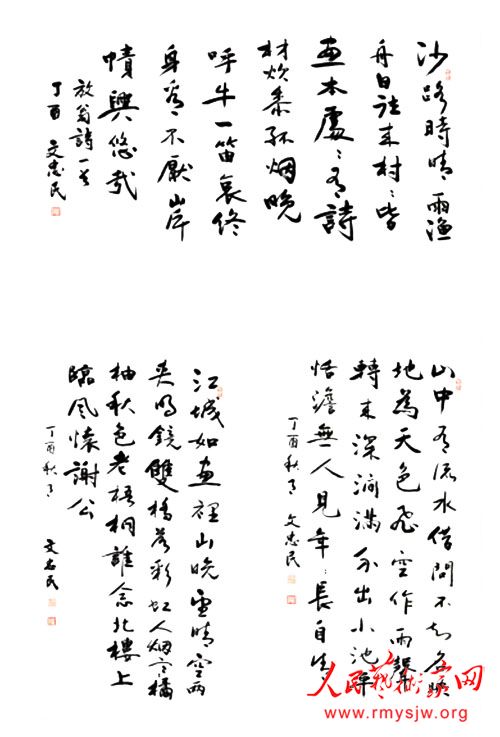 沙路時晴雨漁
舟日往来村々皆
画本處々有詩
材炊黍孤烟晚
呼牛一笛哀終
身看不厭岸
幘興悠哉
放翁詩一首
丁酉 文忠民
山中有流水借問不知名映
地為天色飛空作雨聲
轉来深澗滿分出小池平
恬澹無人見年々長自清
丁酉秋月 文忠民
江城如画裡山晚望晴空兩
夾明鏡雙橋落彩虹人烟寒橘
柚秋色老梧桐誰念北樓上
臨風懷謝公
丁酉秋月 文忠民
人民藝術家网
www.rmysjw.org